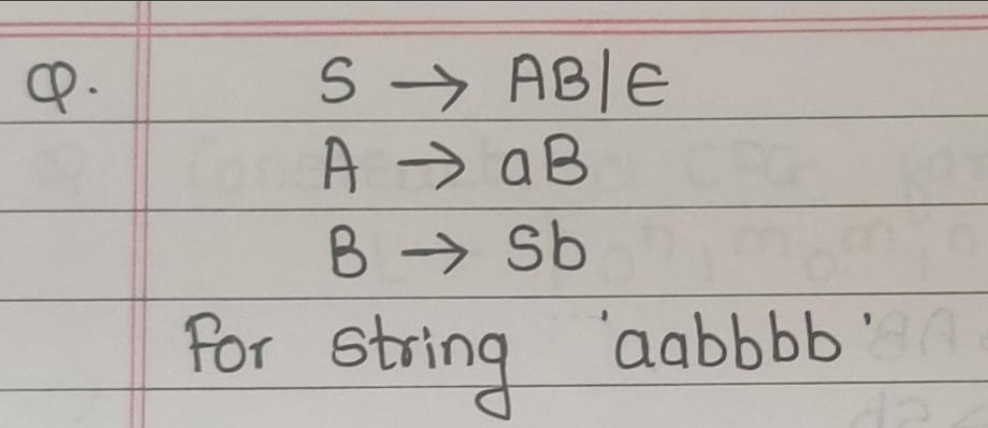 Q. S → AB|∈
A → aB
B → Sb
For string 'aabbbb'